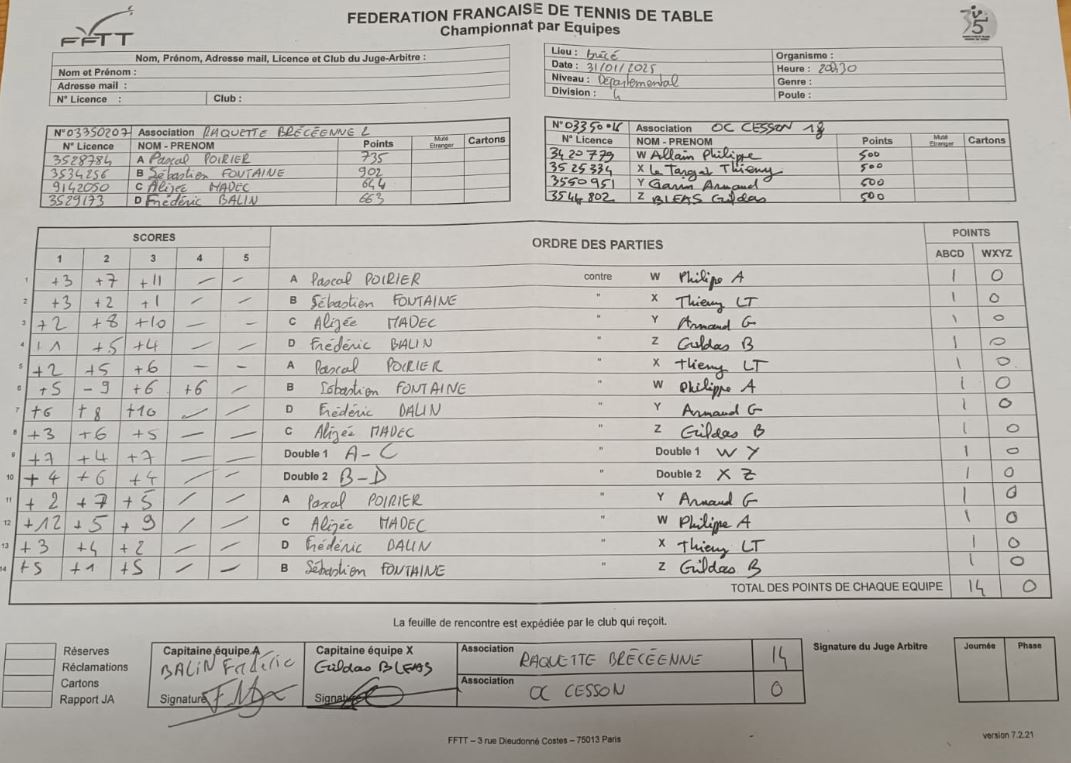 FFTT
FEDERATION FRANCAISE DE TENNIS DE TABLE
Championnat par Equipes
Nom, Prénom, Adresse mail, Licence et Club du Juge-Arbitre :
Nom et Prénom :
Adresse mail :
N° Licence : Club :
Lieu : brécé
Date : 31/01/2025
Niveau : Départemental
Division : 4
Organisme :
Heure : 20h30
Genre :
Poule :
N° 03350207 Association RAQUETTE BRÉCÉENNE 2
N° Licence NOM - PRENOM Points Muté Etranger Cartons
3528784 A Pascal POIRIER 735
3534256 B Sébastien FONTAINE 902
9142050 C Alizée MADEC 644
3529173 D Frédéric BALIN 663
N° 03350 Association OC CESSON 18
N° Licence NOM - PRENOM Points Muté Etranger Cartons
3420779 W Allain Philippe 500
3525334 X Le Targat Thierry 500
3550951 Y Garin Armand 500
3544802 Z BLEAS Gildas 500
SCORES ORDRE DES PARTIES POINTS
1 2 3 4 5 ABCD WXYZ
1 +3 +7 +11 — — A Pascal POIRIER contre W Philipe A 1 0
2 +3 +2 +1 — — B Sébastien FONTAINE " X Thierry LT 1 0
3 +2 +8 +10 — — C Alizée MADEC " Y Armand G 1 0
4 +5 +4 — — D Frédéric BALIN " Z Guldas B 1 0
5 +2 +5 +6 — — A Pascal POIRIER " X Thierry LT 1 0
6 +5 -9 +6 +6 — B Sébastien FONTAINE " W Philippe A 1 0
7 +6 +8 +10 — — D Frédéric BALIN " Y Armand G 1 0
8 +3 +6 +5 — — C Alizée MADEC " Z Gildas B 1 0
9 +7 +4 +7 — — Double 1 A-C " Double 1 W Y 1 0
10 +4 +6 +4 — — Double 2 B-D " Double 2 X Z 1 0
11 +2 +7 +5 — — A Pascal POIRIER " Y Armand G 1 0
12 +12 +5 +9 — — C Alizée MADEC " W Philippe A 1 0
13 +3 +4 +2 — — D Frédéric BALIN " X Thierry LT 1 0
14 +5 +1 +5 — — B Sébastien FONTAINE " Z Gildas B 1 0
TOTAL DES POINTS DE CHAQUE EQUIPE 14 0
La feuille de rencontre est expédiée par le club qui reçoit.
Réserves
Réclamations
Cartons
Rapport JA
Capitaine équipe A
BALIN Frédéric
Signature
Capitaine équipe X
Gildas BLEAS
Signature
Association RAQUETTE BRÉCÉENNE 14
Association OC CESSON 0
Signature du Juge Arbitre
Journée Phase
FFTT – 3 rue Dieudonné Costes – 75013 Paris
version 7.2.21